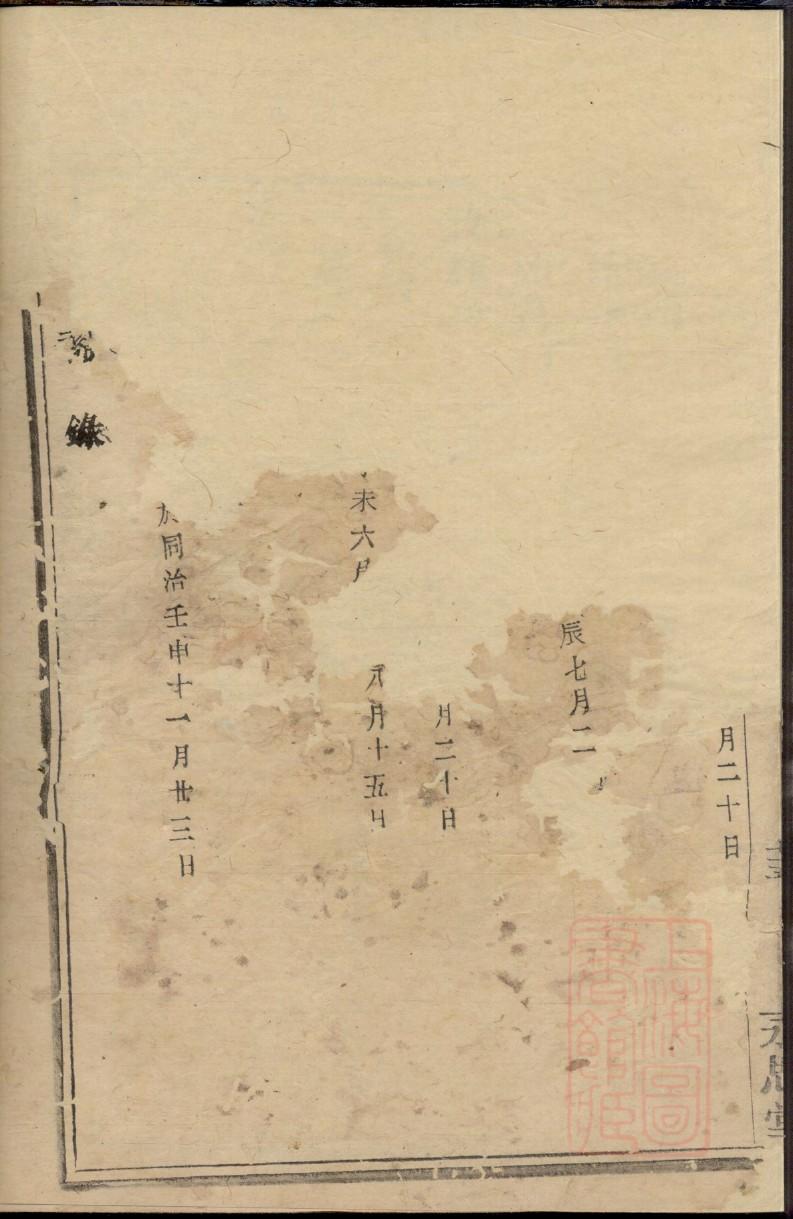 月二十日
辰七月二
月二十日
八月十五日
未六月
於同治壬申十一月廿三日
錄
永思堂
上海圖書館藏